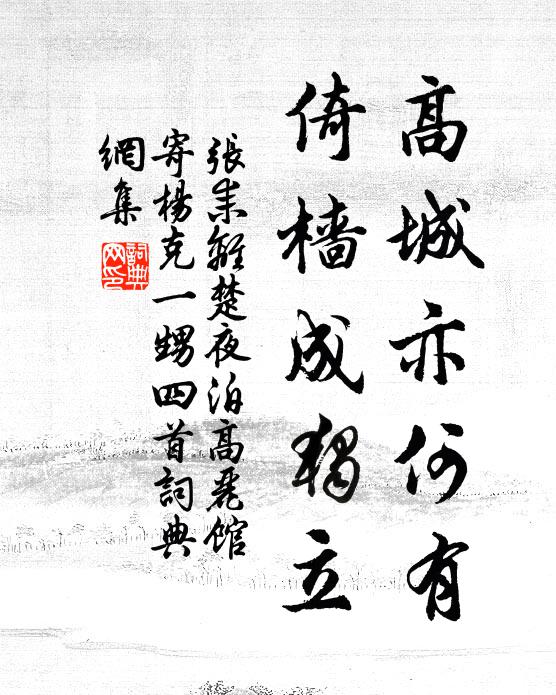 高城亦何有
倚樯成独立
張耒離楚夜泊高麗馆
寄楊克一甥四首詞典
網集
詞典
网印